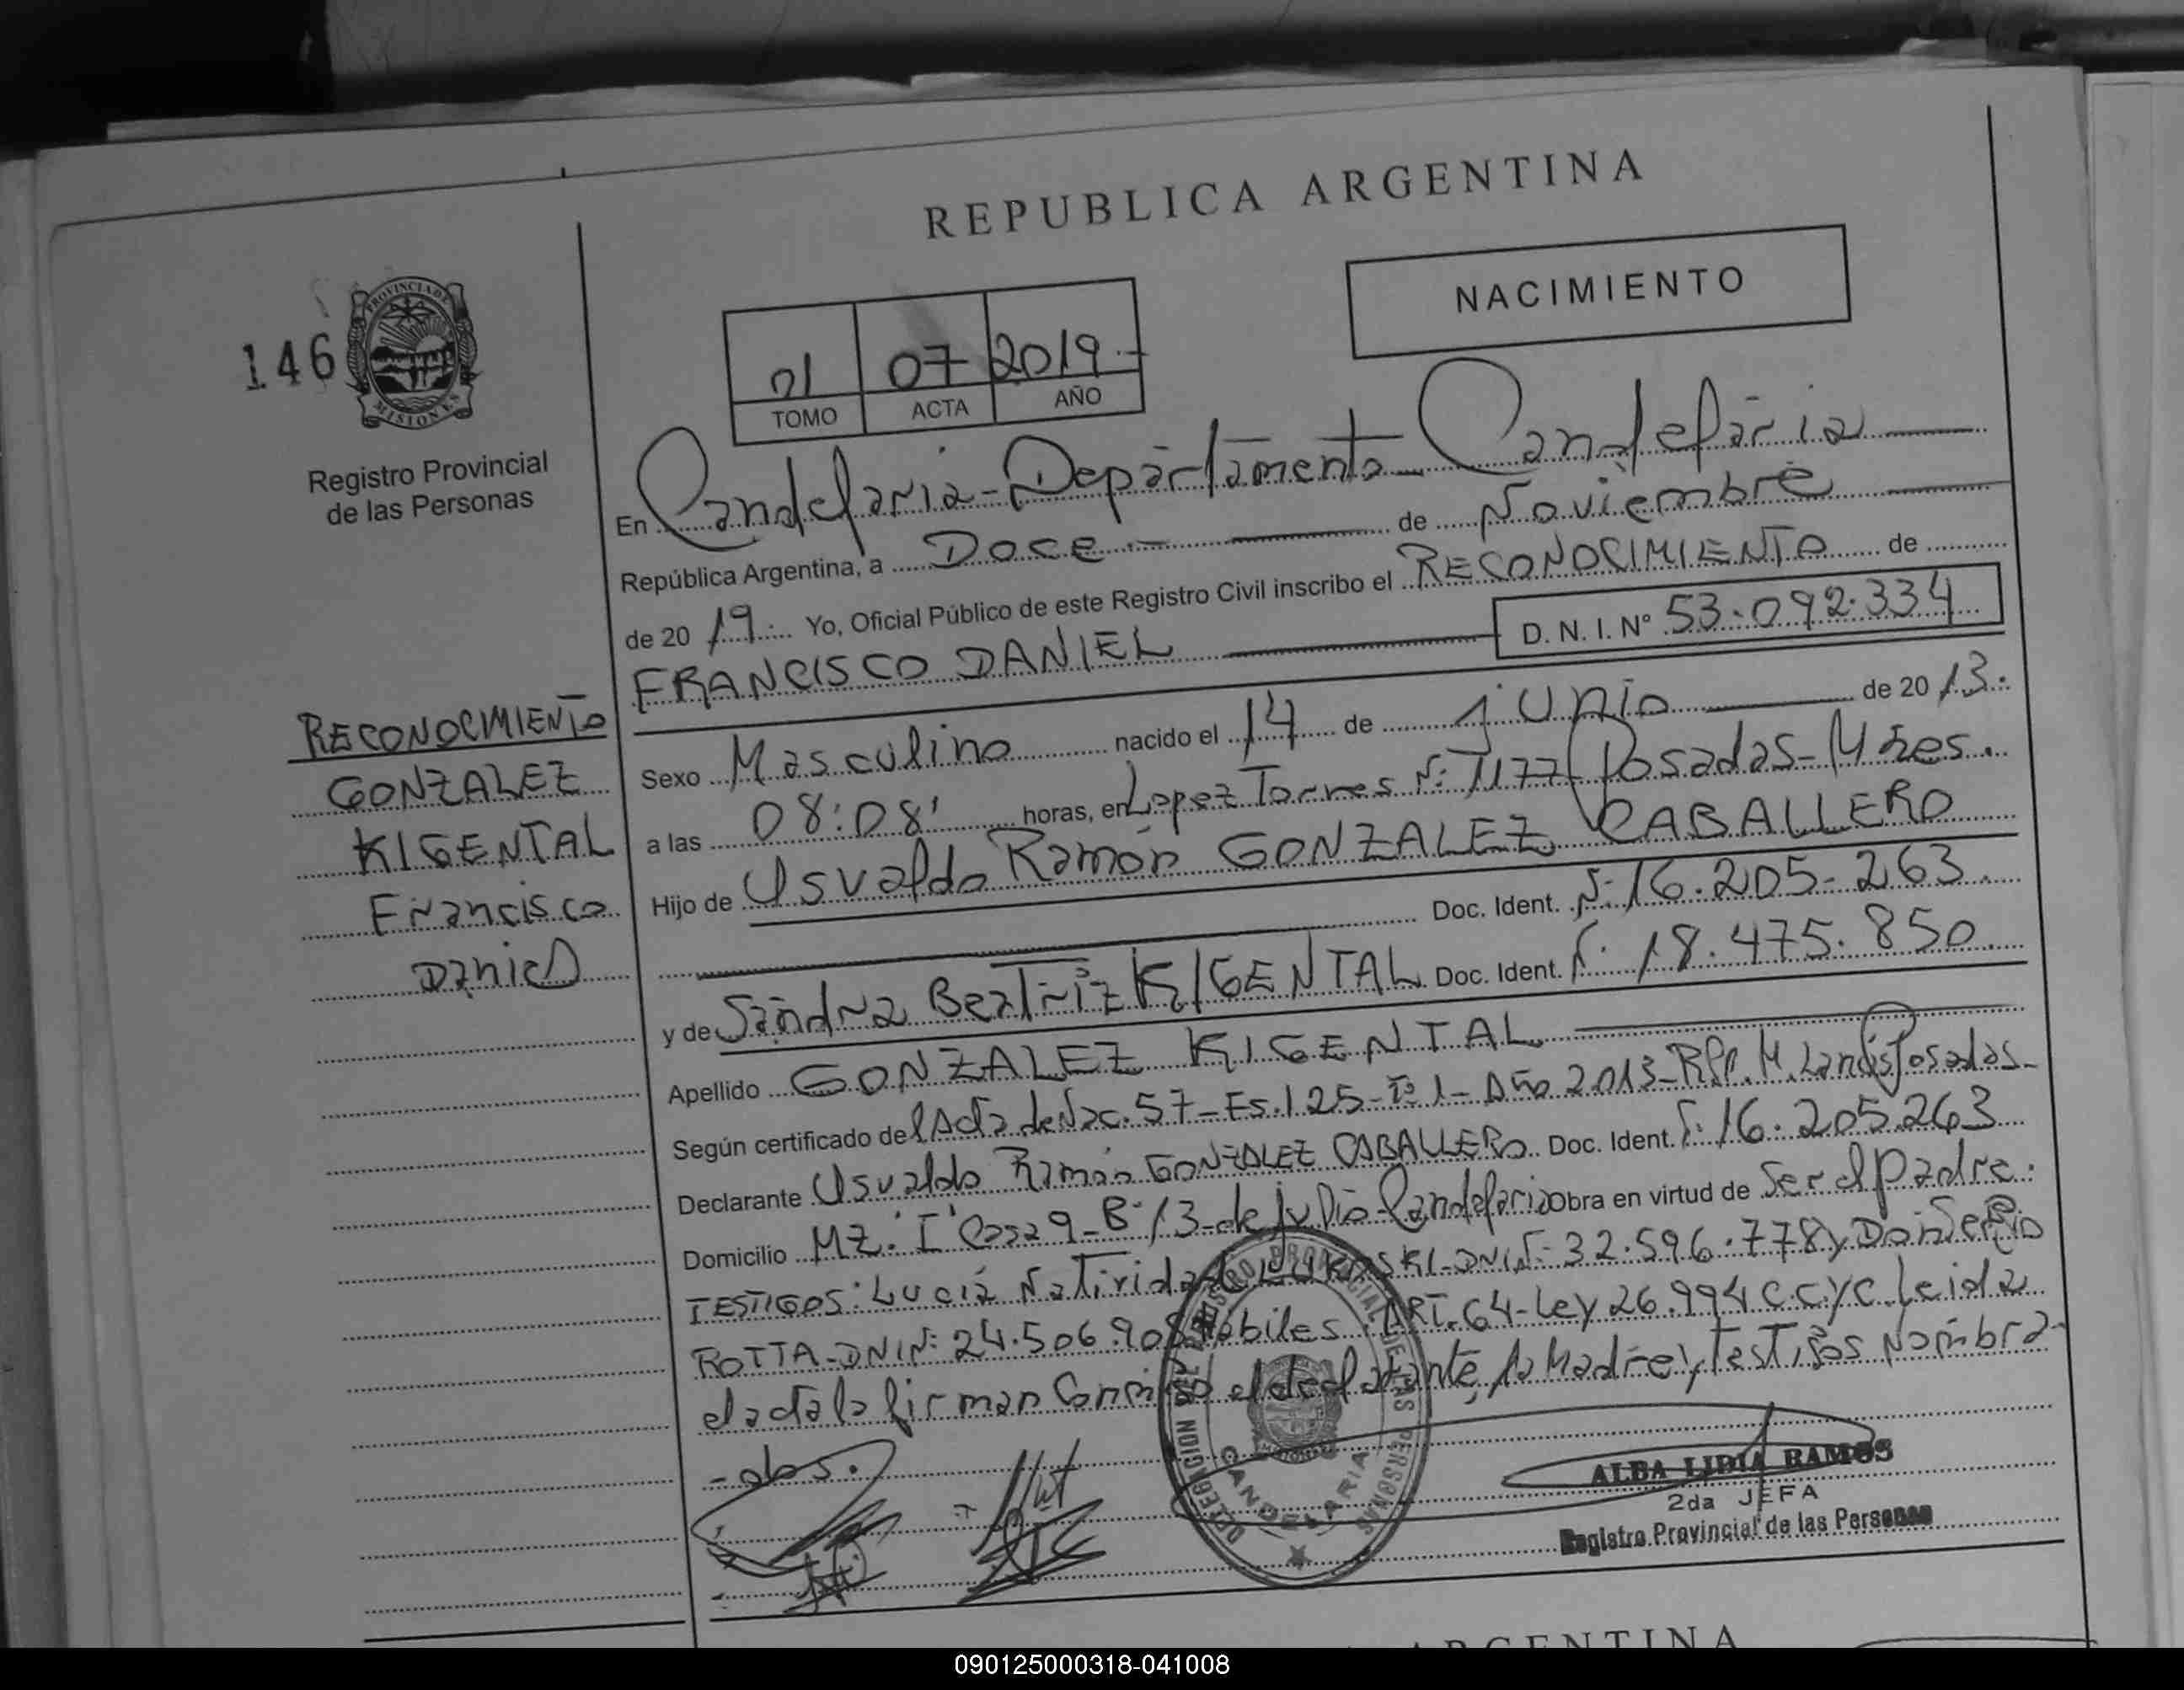 REPUBLICA ARGENTINA
NACIMIENTO
146
PROVINCIA DE
MISIONES
Registro Provincial
de las Personas
01 07 2019.-
TOMO ACTA AÑO
En Candelaria - Departamento Candelaria
República Argentina, a Doce de Noviembre
de 20 19. Yo, Oficial Público de este Registro Civil inscribo el RECONOCIMIENTO de
FRANCISCO DANIEL D. N. I. N° 53.092.334
RECONOCIMIENTO
GONZALEZ
KIGENTAL
Francisco
Daniel
Sexo Masculino nacido el 14 de junio de 20 13.
a las 08:08' horas, en Lopez Torres N: 1177 Posadas-Mnes.
Hijo de Usvaldo Ramón GONZALEZ CABALLERO
Doc. Ident. N: 16.205.263
y de Sandra Beatriz KIGENTAL Doc. Ident. N: 18.475.850
Apellido GONZALEZ KIGENTAL
Según certificado del Acta de Nac. 57-Fs.125-Tº 1- Año 2013- Posadas-
Declarante Usvaldo Ramón GONZALEZ CABALLERO Doc. Ident. N: 16.205.263
Domicilio MZ: "I" Casa 9-B: 13-de julio-Candelaria obra en virtud de ser el Padre.
TESTIGOS: Lucia Natividad DNI N: 32.596.778 y
ROTTA-DNI N: 24.506.908 Hábiles ART. 64-Ley 26.994 CCyC. Leida
el acta la firman Conmigo el declarante, la Madre y testigos Nombra-
-dos.
REGISTRO PROVINCIAL DE LAS PERSONAS
CANDELARIA
ALBA LIDIA RAMOS
2da JEFA
Registro Provincial de las Personas
ARGENTINA
090125000318-041008